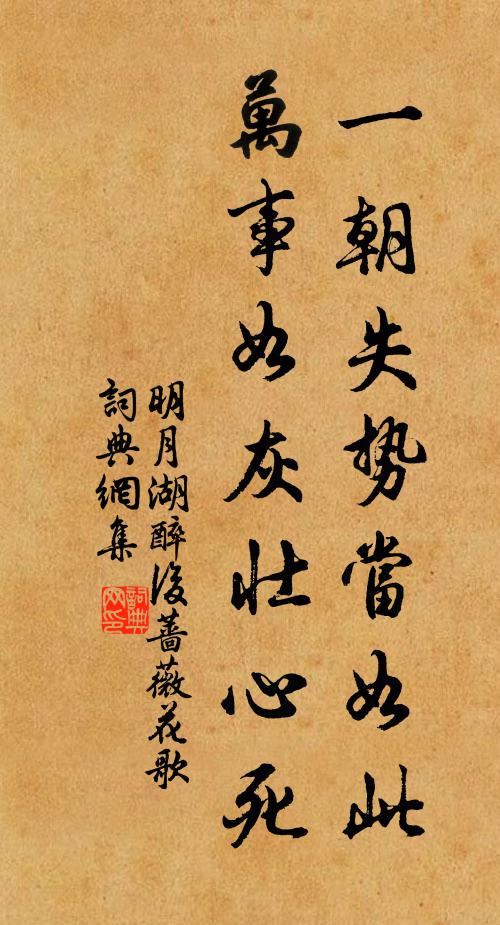 一朝失势當如此
萬事如灰壮心死
明月湖醉後薔薇花歌
詞典網集
詞典网印